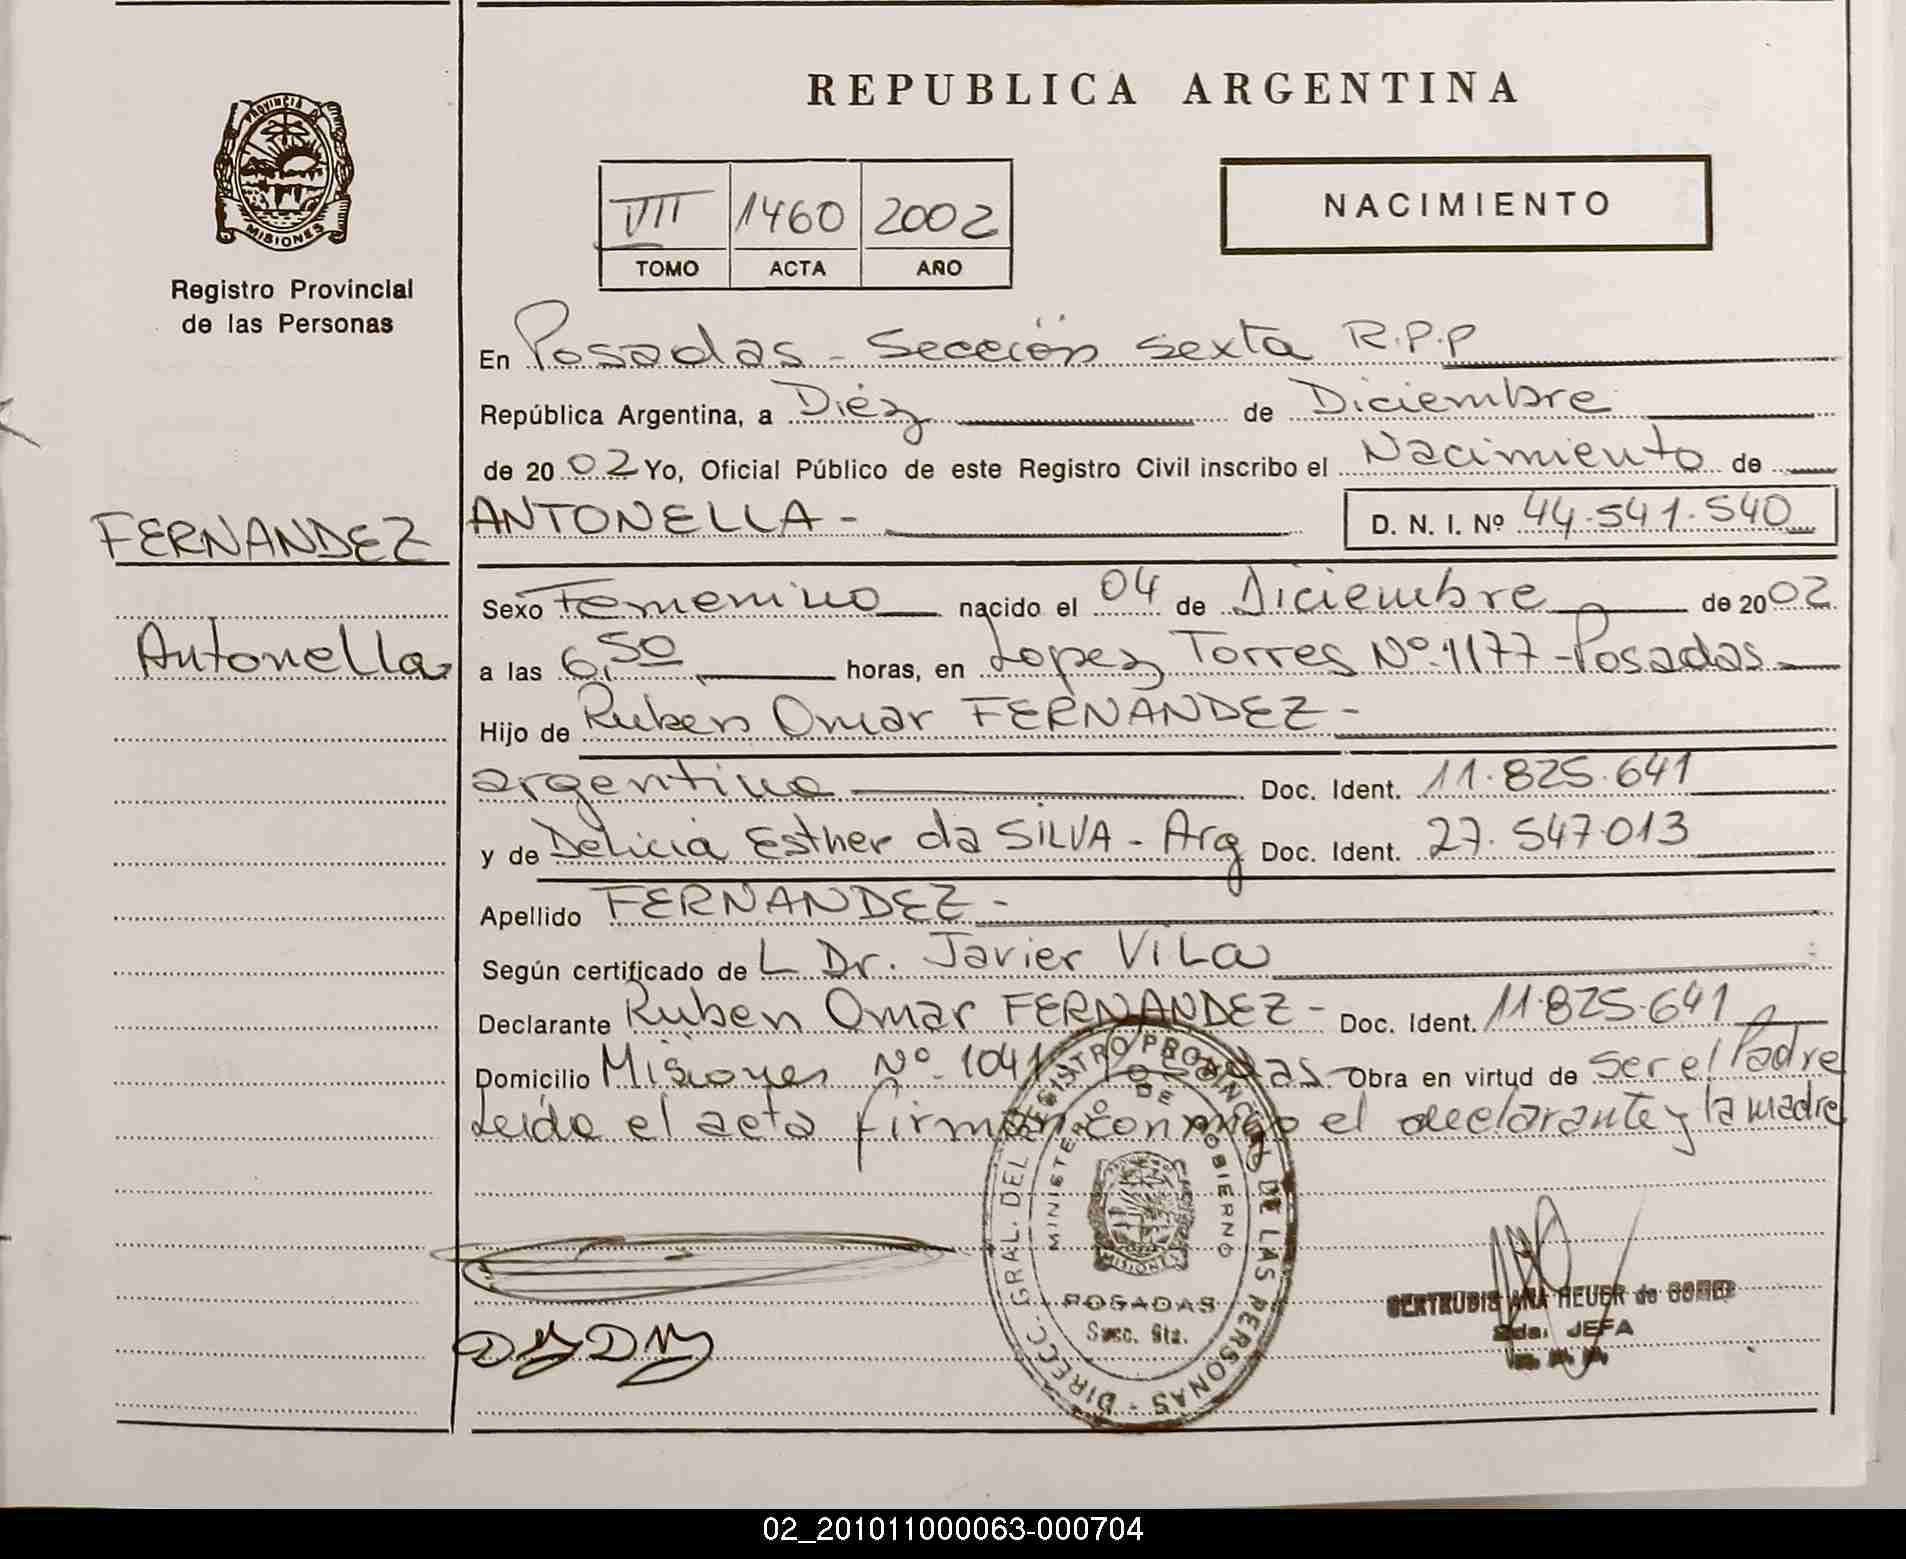 REPUBLICA ARGENTINA
PROVINCIA D
MISIONES
Registro Provincial
de las Personas
VII 1460 2002
TOMO ACTA AÑO
NACIMIENTO
En Posadas - Sección Sexta R.P.P
República Argentina, a Diéz de Diciembre
de 2002 Yo, Oficial Público de este Registro Civil inscribo el Nacimiento de
FERNANDEZ
ANTONELLA - D. N. I. Nº 44.541.540
Sexo Femenino nacido el 04 de Diciembre de 2002
Antonella
a las 6,50 horas, en Lopez Torres Nº 1177 - Posadas
Hijo de Ruben Omar FERNANDEZ -
argentino Doc. Ident. 11.825.641
y de Delicia Esther da SILVA - Arg Doc. Ident. 27.547.013
Apellido FERNANDEZ -
Según certificado de L Dr. Javier Vila
Declarante Ruben Omar FERNANDEZ - Doc. Ident. 11.825.641
Domicilio Misiones Nº 1041 Posadas Obra en virtud de ser el Padre
Leída el acta firman conmigo el declarante y la madre
DIRECC. GRAL. DEL REGISTRO PROVINCIAL DE LAS PERSONAS
MINISTERIO DE GOBIERNO
MISIONES
POSADAS
Secc. 6ta.
GERTRUDIS ANA HEUER de GOMEZ
2da. JEFA
02_201011000063-000704